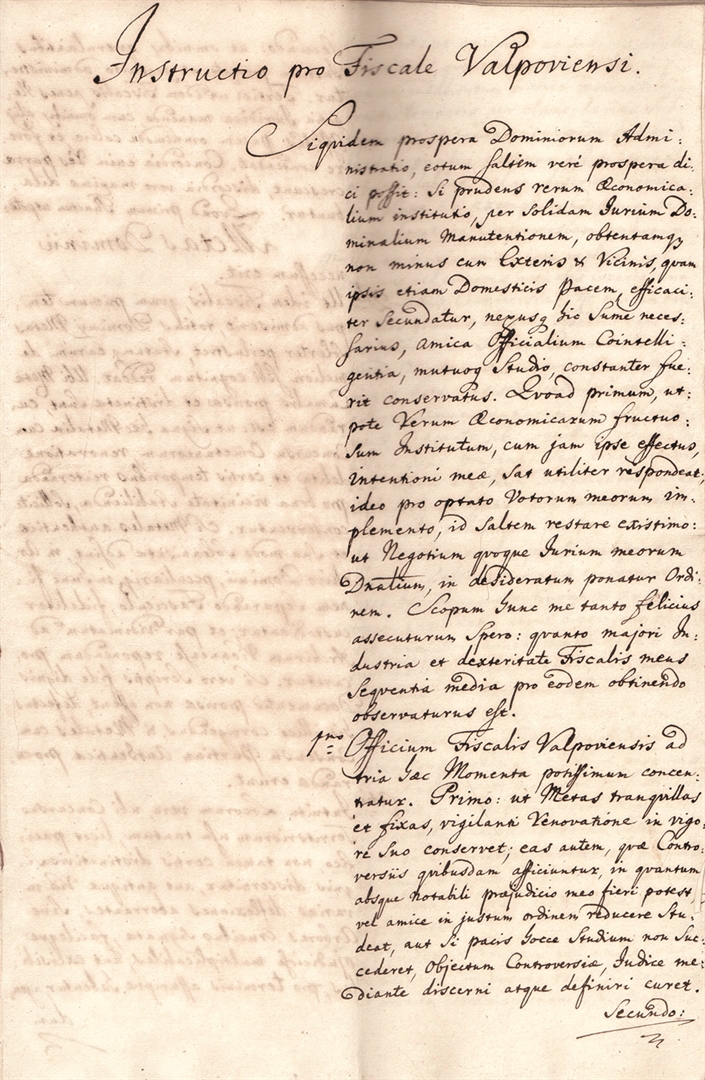 Instructio pro Fiscale Valpoviensi.
Siquidem prospera Dominiorum Admi:
nistratio, eotum saltem veré prospera di:
ci possit: si prudens rerum Œconomica:
lium institutio, per solidam Iurium Do:
minalium Manutentionem, obtentamq3
non minus cum Exteris & Vicinis, quam
ipsis etiam Domesticis Pacem, efficaci:
ter Secundatur, nexusq hic Sumé neces:
sarius, amica Officialium Cointelli:
gentia, mutuoq Studio, constanter fue:
rit conservatus. Qvoad primum, ut:
pote Rerum Œconomicarum fructuo:
sum Institutum, cum jam ipse effectus,
intentioni meæ, sat utiliter respondeat;
ideo pro optato Votorum meorum im:
plemento, id Saltem restare existimo:
ut Negotium qvoque Iurium meorum
Dnalium, in desideratum ponatur Ordi:
nem. Scopum hunc me tanto felicius
assecuturum Spero: qvanto majori In:
dustria et dexteritate Fiscalis meus
Seqventia media pro eodem obtinendo
observaturus est.
1mo Officium Fiscalis Valpoviensis ad
tria hæc Momenta potissimum concen:
tratur. Primo: ut Metas tranquillas
et fixas, vigilanti Renovatione in vigo:
re Suo conservet; eas autem, qvæ Contro:
versiis qvibusdam afficiuntur, in qvantum
absque notabili præjudicio meo fieri potest,
vel amice in justum ordinem reducere Stu:
deat, aut Si pacis hocce Studium non Suc:
cederet, Objectum Controversiæ, Iudice me:
diante discerni atque definiri curet.
Secundo: